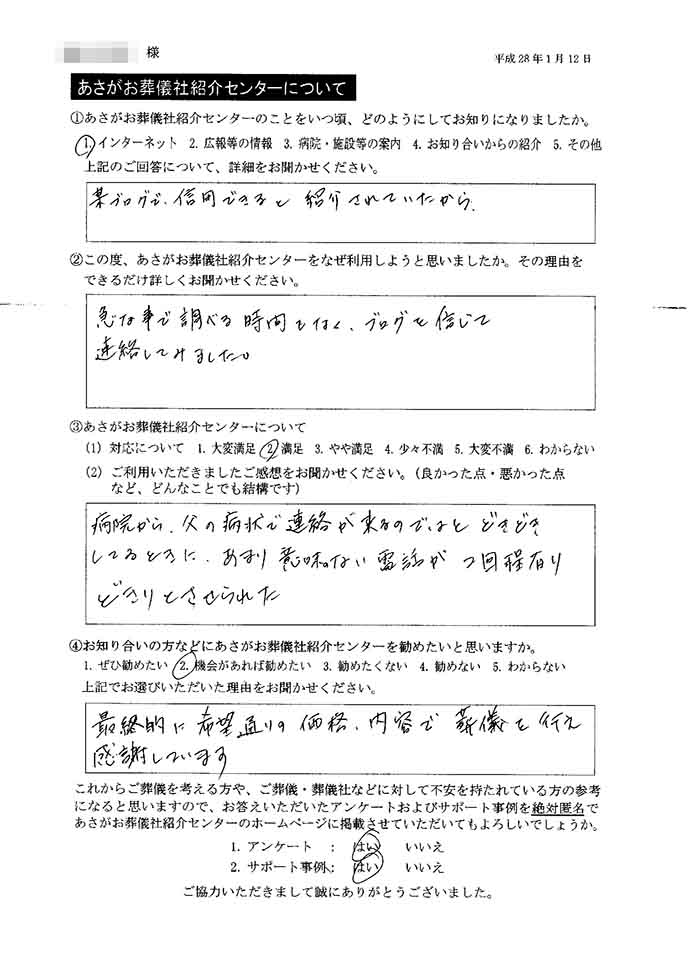 様
平成28年1月12日
あさがお葬儀社紹介センターについて
①あさがお葬儀社紹介センターのことをいつ頃、どのようにしてお知りになりましたか。
1. インターネット 2. 広報等の情報 3. 病院・施設等の案内 4. お知り合いからの紹介 5. その他
上記のご回答について、詳細をお聞かせください。
某ブログで、信用できると紹介されていたから、
②この度、あさがお葬儀社紹介センターをなぜ利用しようと思いましたか。その理由を
できるだけ詳しくお聞かせください。
急な事で調べる時間もなく、ブログを信じて
連絡してみました。
③あさがお葬儀社紹介センターについて
(1) 対応について 1. 大変満足 2. 満足 3. やや満足 4. 少々不満 5. 大変不満 6. わからない
(2) ご利用いただきましたご感想をお聞かせください。(良かった点・悪かった点
など、どんなことでも結構です)
病院から、父の病状で連絡が来るのではとどきどき
してるときに、あまり意味のない電話が2回程有り
どきりとさせられた
④お知り合いの方などにあさがお葬儀社紹介センターを勧めたいと思いますか。
1. ぜひ勧めたい 2. 機会があれば勧めたい 3. 勧めたくない 4. 勧めない 5. わからない
上記でお選びいただいた理由をお聞かせください。
最終的に希望通りの価格、内容で葬儀を行え
感謝しています
これからご葬儀を考える方や、ご葬儀・葬儀社などに対して不安を持たれている方の参考
になると思いますので、お答えいただいたアンケートおよびサポート事例を絶対匿名で
あさがお葬儀社紹介センターのホームページに掲載させていただいてもよろしいでしょうか。
1. アンケート : はい いいえ
2. サポート事例: はい いいえ
ご協力いただきまして誠にありがとうございました。